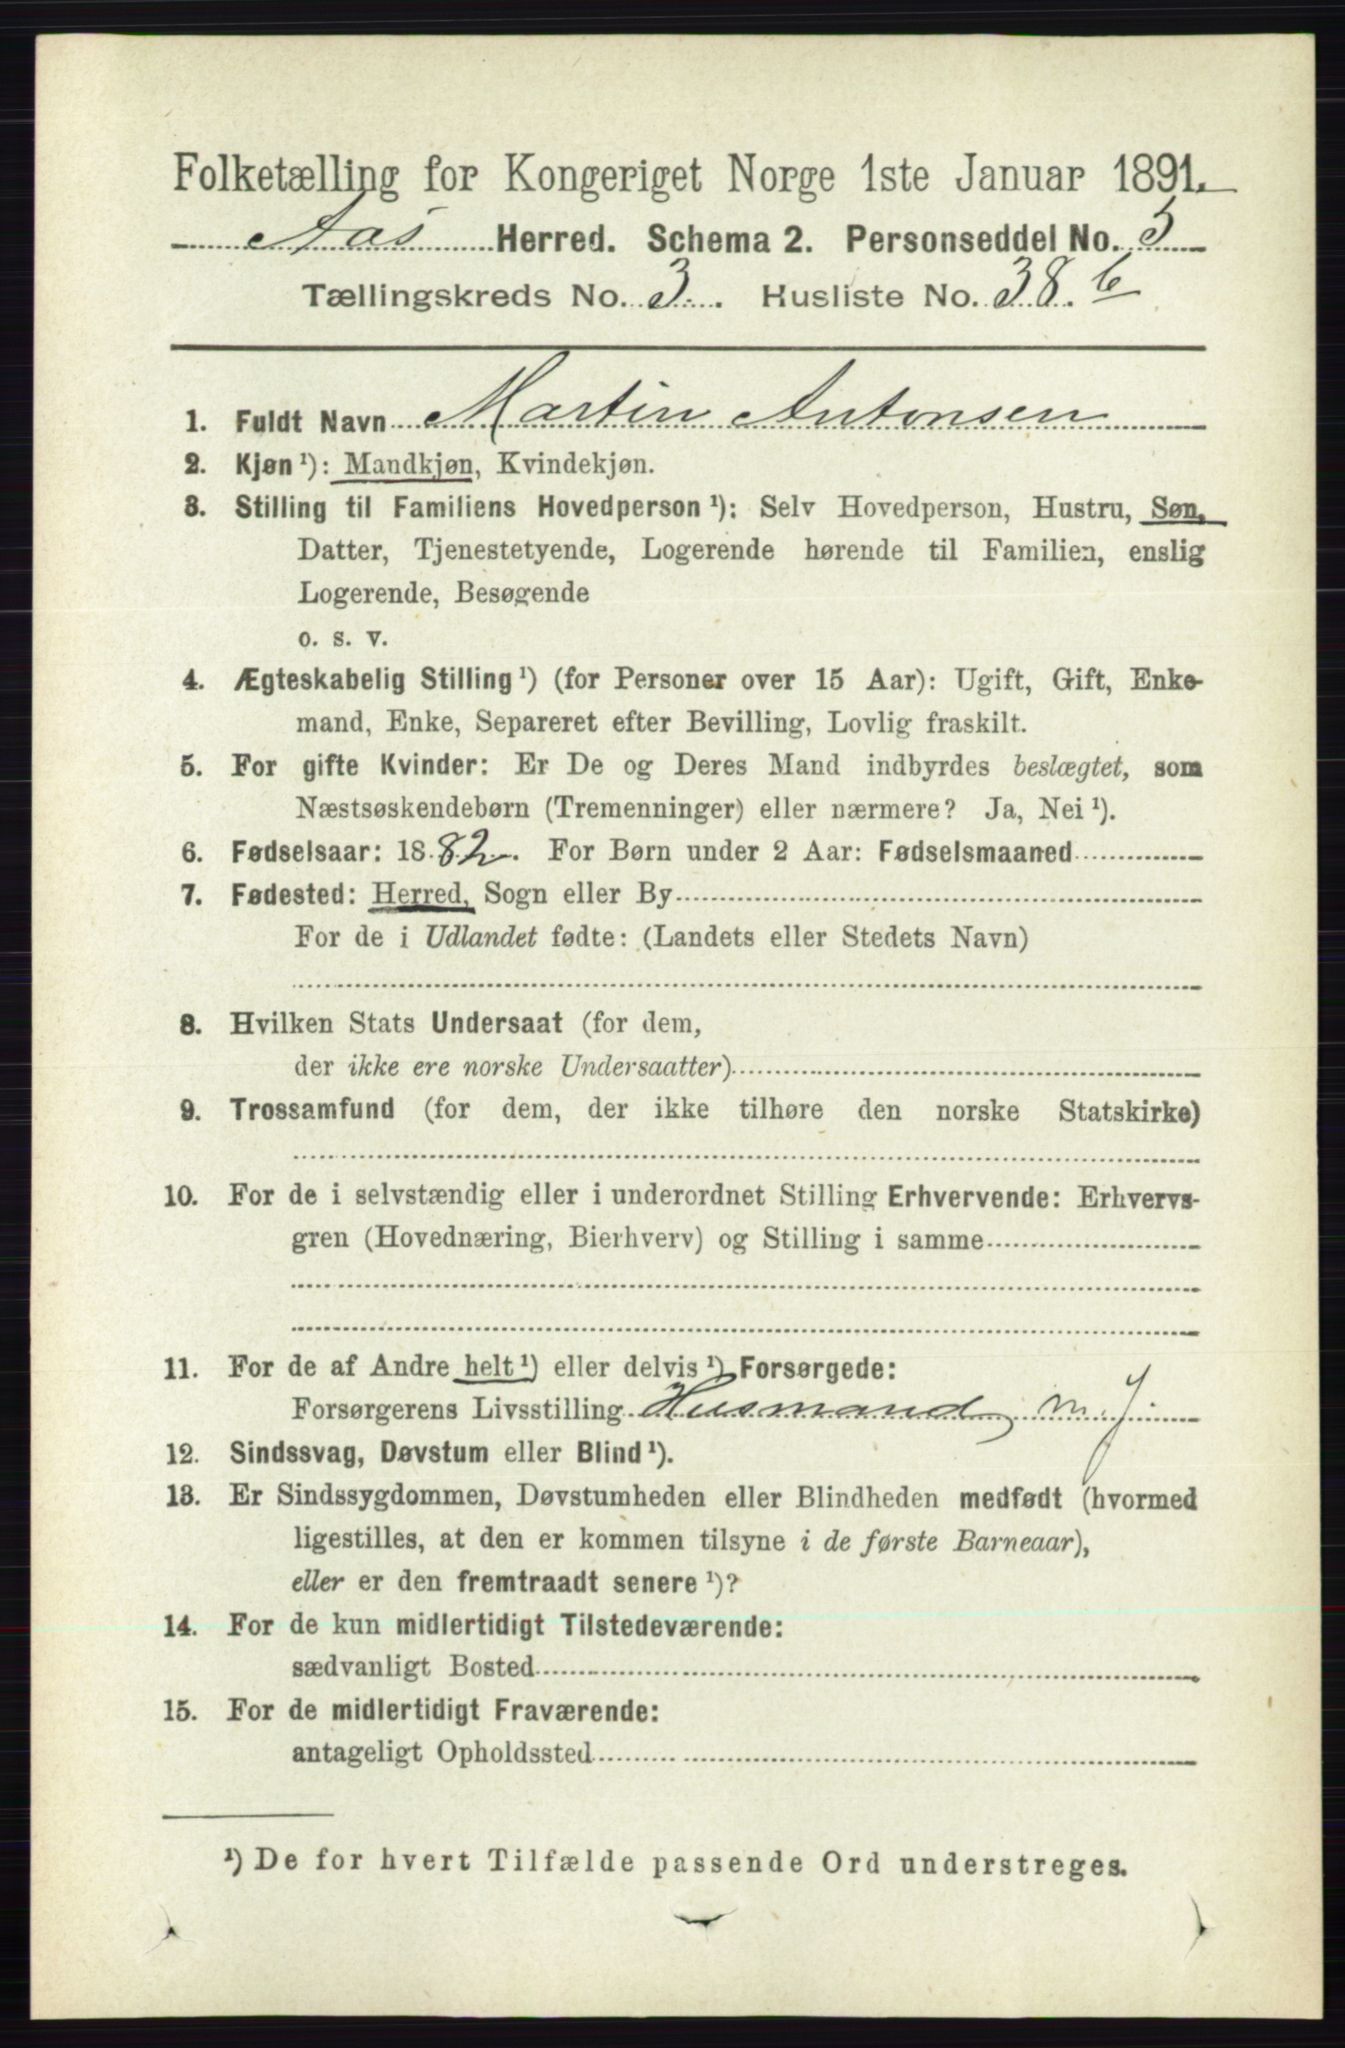 Folketælling for Kongeriget Norge 1ste Januar 1891.
Aas Herred. Schema 2. Personseddel No. 5
Tællingskreds No. 3. Husliste No. 38. b
1. Fuldt Navn Martin Antonsen
2. Kjøn ¹): Mandkjøn, Kvindekjøn.
3. Stilling til Familiens Hovedperson ¹): Selv Hovedperson, Hustru, Søn,
Datter, Tjenestetyende, Logerende hørende til Familien, enslig
Logerende, Besøgende
o. s. v.
4. Ægteskabelig Stilling ¹) (for Personer over 15 Aar): Ugift, Gift, Enke-
mand, Enke, Separeret efter Bevilling, Lovlig fraskilt.
5. For gifte Kvinder: Er De og Deres Mand indbyrdes beslægtet, som
Næstsøskendebørn (Tremenninger) eller nærmere? Ja, Nei ¹).
6. Fødselsaar: 1882. For Børn under 2 Aar: Fødselsmaaned
7. Fødested: Herred, Sogn eller By
For de i Udlandet fødte: (Landets eller Stedets Navn)
8. Hvilken Stats Undersaat (for dem,
der ikke ere norske Undersaatter)
9. Trossamfund (for dem, der ikke tilhøre den norske Statskirke)
10. For de i selvstændig eller i underordnet Stilling Erhvervende: Erhvervs-
gren (Hovednæring, Bierhverv) og Stilling i samme
11. For de af Andre helt ¹) eller delvis ¹) Forsørgede:
Forsørgerens Livsstilling Husmand m. J.
12. Sindssvag, Døvstum eller Blind ¹).
13. Er Sindssygdommen, Døvstumheden eller Blindheden medfødt (hvormed
ligestilles, at den er kommen tilsyne i de første Barneaar),
eller er den fremtraadt senere ¹)?
14. For de kun midlertidigt Tilstedeværende:
sædvanligt Bosted
15. For de midlertidigt Fraværende:
antageligt Opholdssted
¹) De for hvert Tilfælde passende Ord understreges.